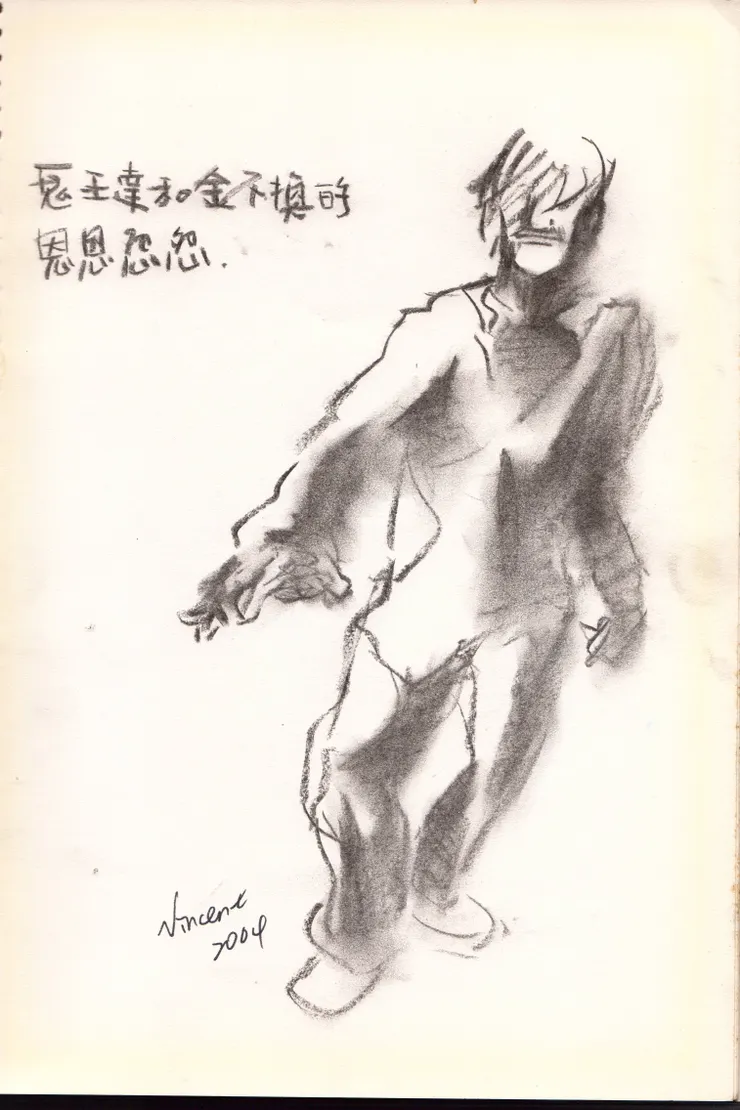 鬼王達和金不換的
恩恩怨怨.
Vincent
2004